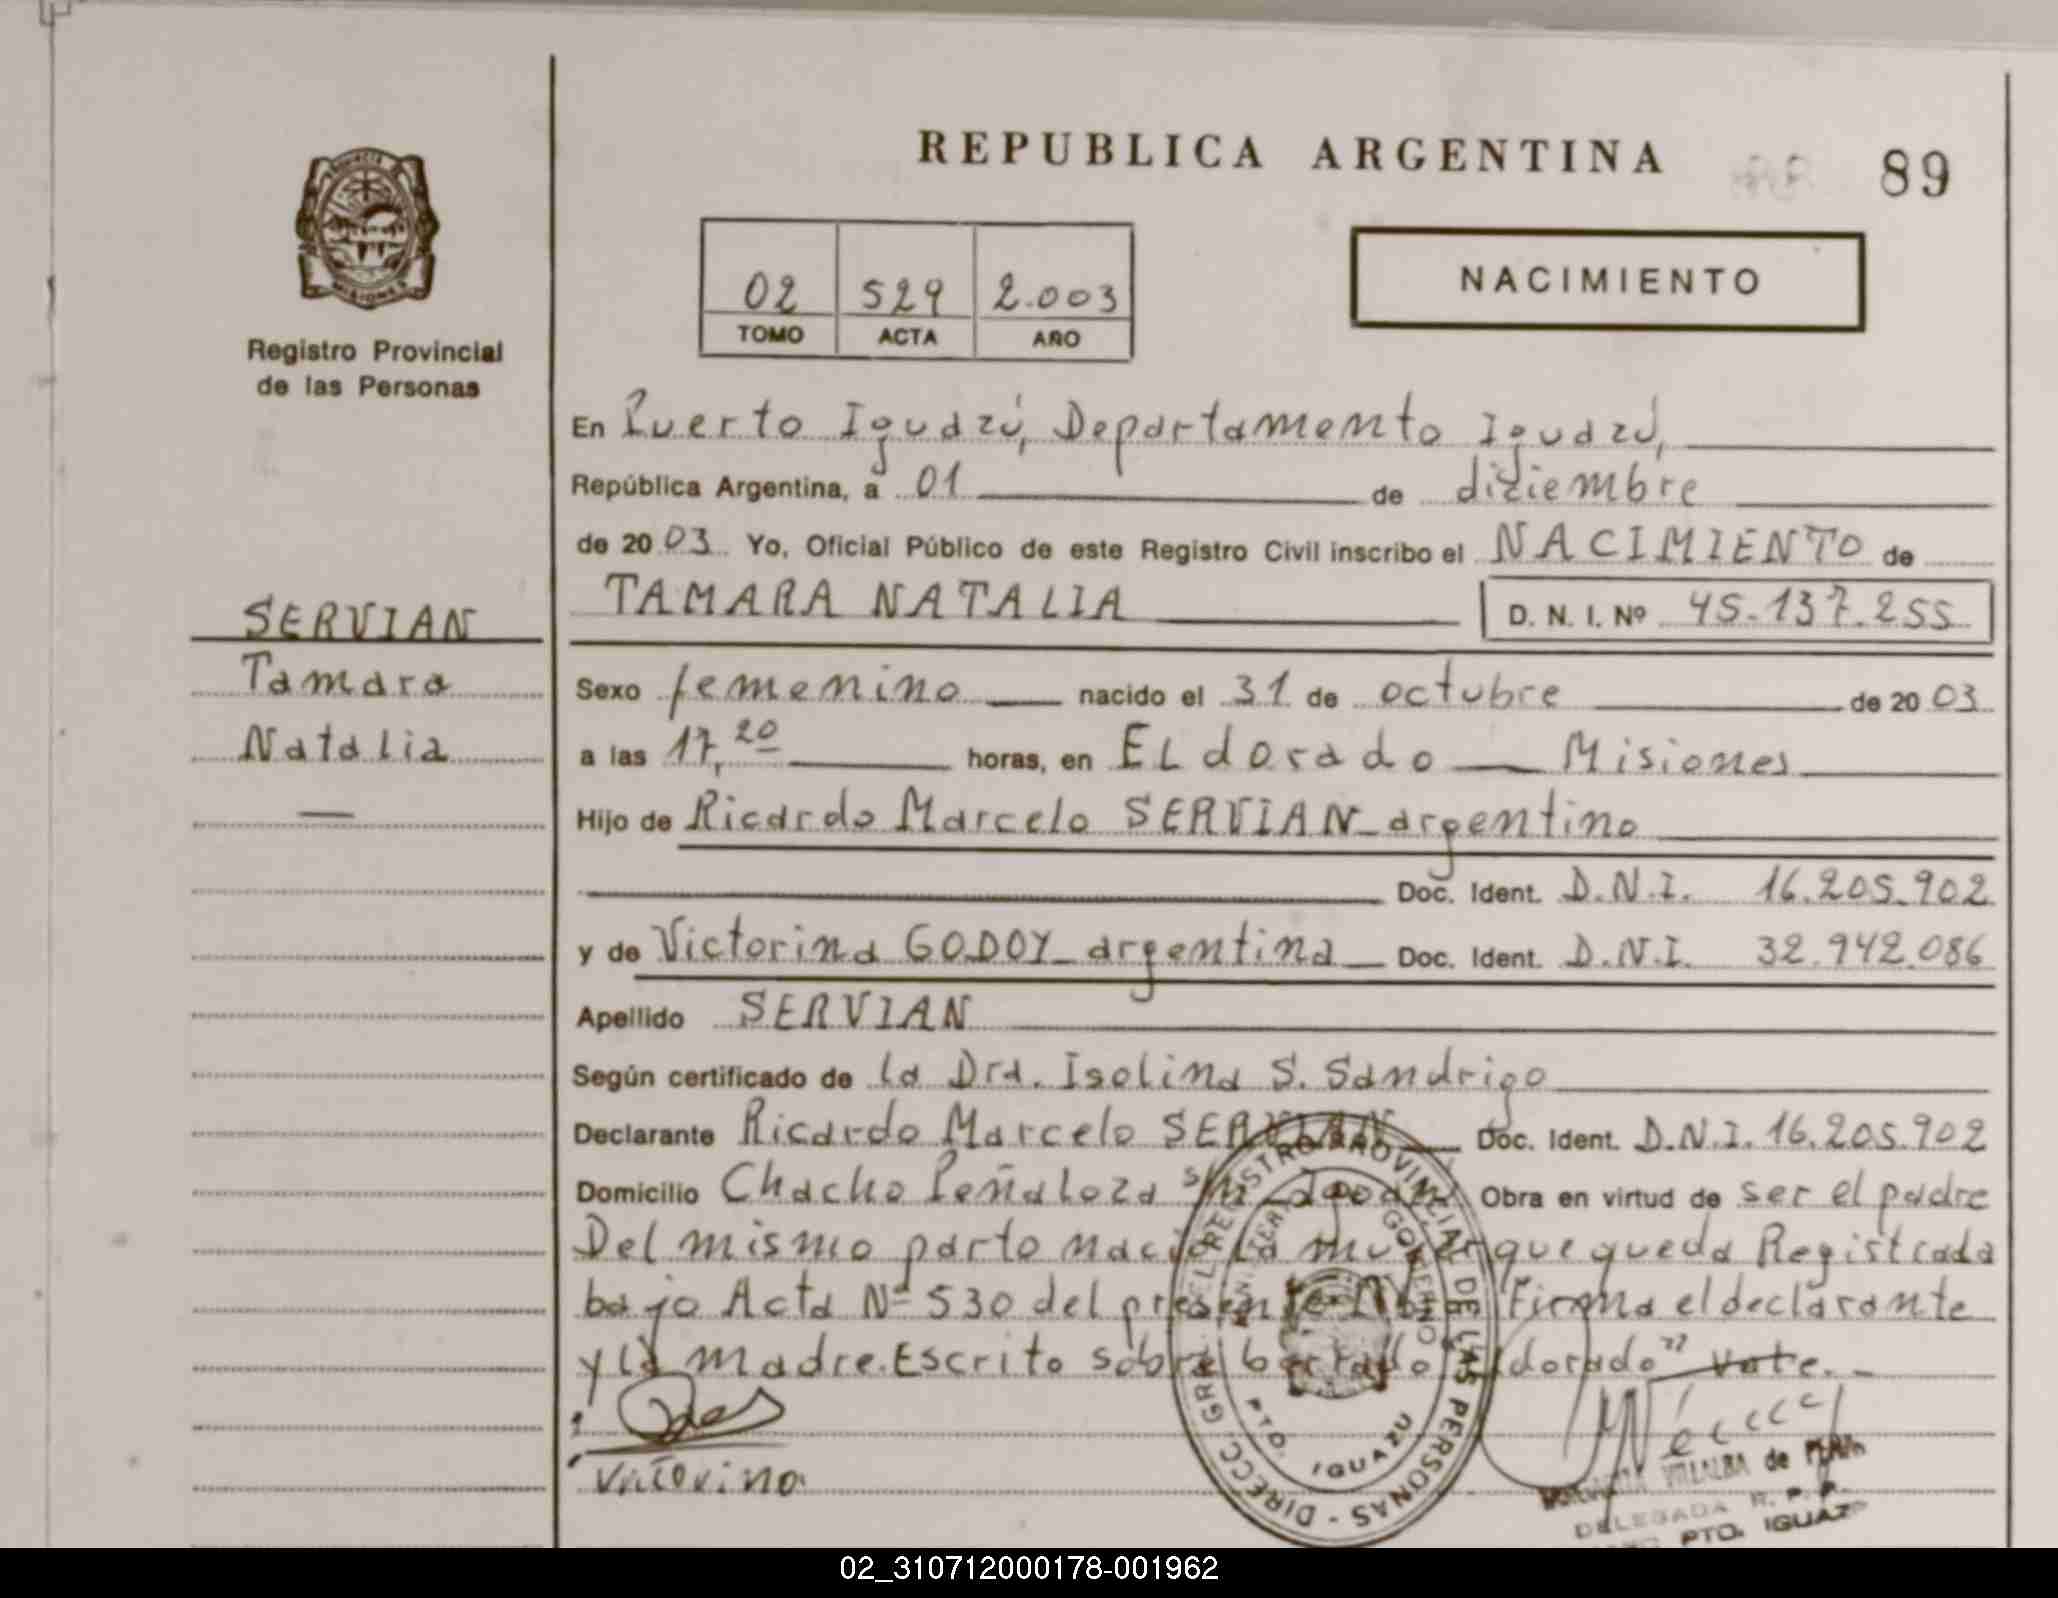 REPUBLICA ARGENTINA
89
PROVINCIA
MISIONES
Registro Provincial
de las Personas
02 529 2.003
TOMO ACTA AÑO
NACIMIENTO
En Puerto Iguazú, Departamento Iguazú,
República Argentina, a 01 de diciembre
de 2003 Yo, Oficial Público de este Registro Civil inscribo el NACIMIENTO de
TAMARA NATALIA D. N. I. Nº 45.137.255
SERVIAN
Tamara
Natalia
Sexo femenino nacido el 31 de octubre de 2003
a las 17,20 horas, en ELdorado — Misiones
Hijo de Ricardo Marcelo SERVIAN argentino
Doc. Ident. D.N.I. 16.205.902
y de Victorina GODOY argentina Doc. Ident. D.N.I. 32.942.086
Apellido SERVIAN
Según certificado de la Dra. Isolina S. Sandrigo
Declarante Ricardo Marcelo SERVIAN Doc. Ident. D.N.I. 16.205.902
Domicilio Chacho Peñaloza s/n Obra en virtud de ser el padre
Del mismo parto nació la mujer que queda Registrada
bajo Acta Nº 530 del presente Firma el declarante
y la madre. Escrito sobre borrado Eldorado" Vale.-
Victorina
DIRECC. GRAL. DEL REGISTRO PROVINCIAL DE LAS PERSONAS
MINISTERIO DE GOBIERNO
PTO. IGUAZU
VILLALBA de
DELEGADA R. P. P.
PTO. IGUAZU
02_310712000178-001962